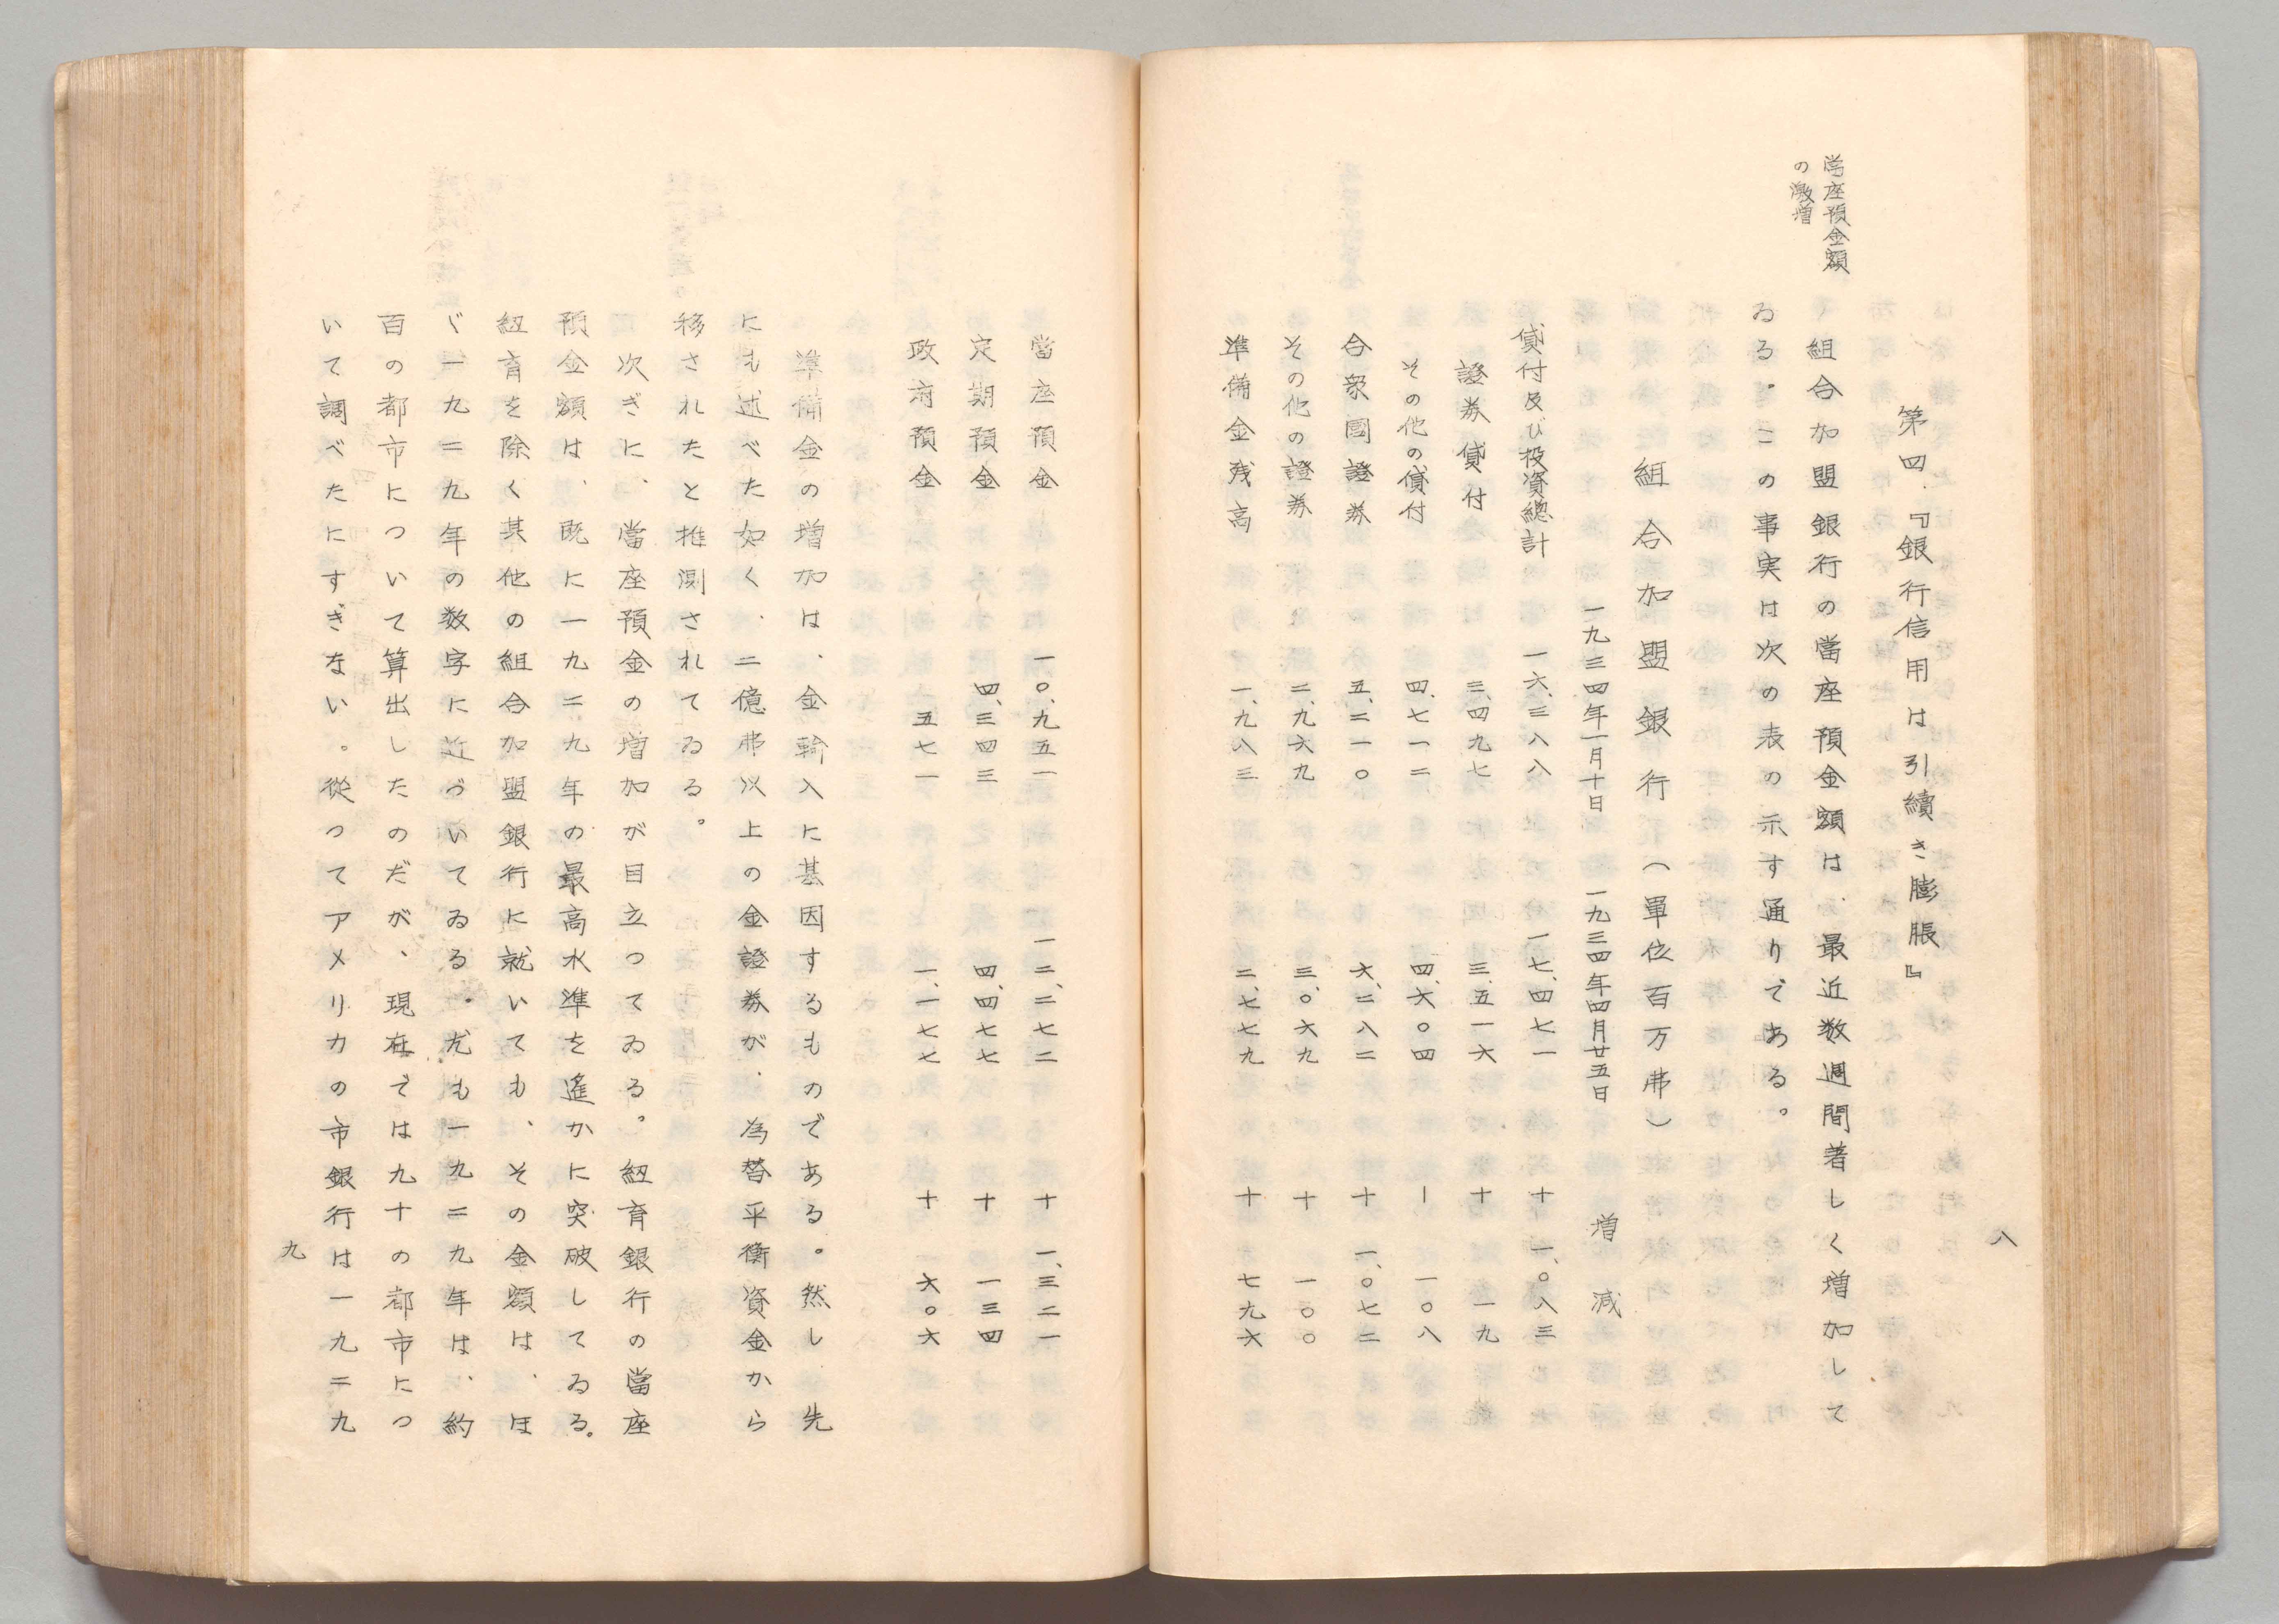 第四、『銀行信用は引續き膨脹』
當座預金額
の激増
組合加盟銀行の當座預金額は、最近数週間著しく増加して
ゐる。この事実は次の表の示す通りである。
組合加盟銀行(單位百万弗)
一九三四年一月十日 一九三四年四月廿五日 増減
貸付及び投資總計 一六、三八八 一七、四七一 十 一、〇八三
證券貸付 三、四九七 三、五一六 十 一九
その他の貸付 四、七一二 四、六〇四 ー 一〇八
合衆國證券 五、二一〇 六、二八二 十 一、〇七二
その他の證券 二、九六九 三、〇六九 十 一〇〇
準備金残高 一、九八三 二、七七九 十 七九六
八
當座預金 一〇、九五一 一二、二七二 十 一、三二一
定期預金 四、三四三 四、四七七 十 一三四
政府預金 五七一 一、一七七 十 六〇六
準備金の増加は、金輸入に基因するものである。然し先
にも述べた如く、二億弗以上の金證券が、為替平衡資金から
移されたと推測されてゐる。
次ぎに、當座預金の増加が目立つてゐる。紐育銀行の當座
預金額は、既に一九二九年の最高水準を遙かに突破してゐる。
紐育を除く其他の組合加盟銀行に就いても、その金額は、ほ
ゞ一九二九年の数字に近づいてゐる。尤も一九二九年は、約
百の都市について算出したのだが、現在では九十の都市につ
いて調べたにすぎない。從つてアメリカの市銀行は一九二九
九